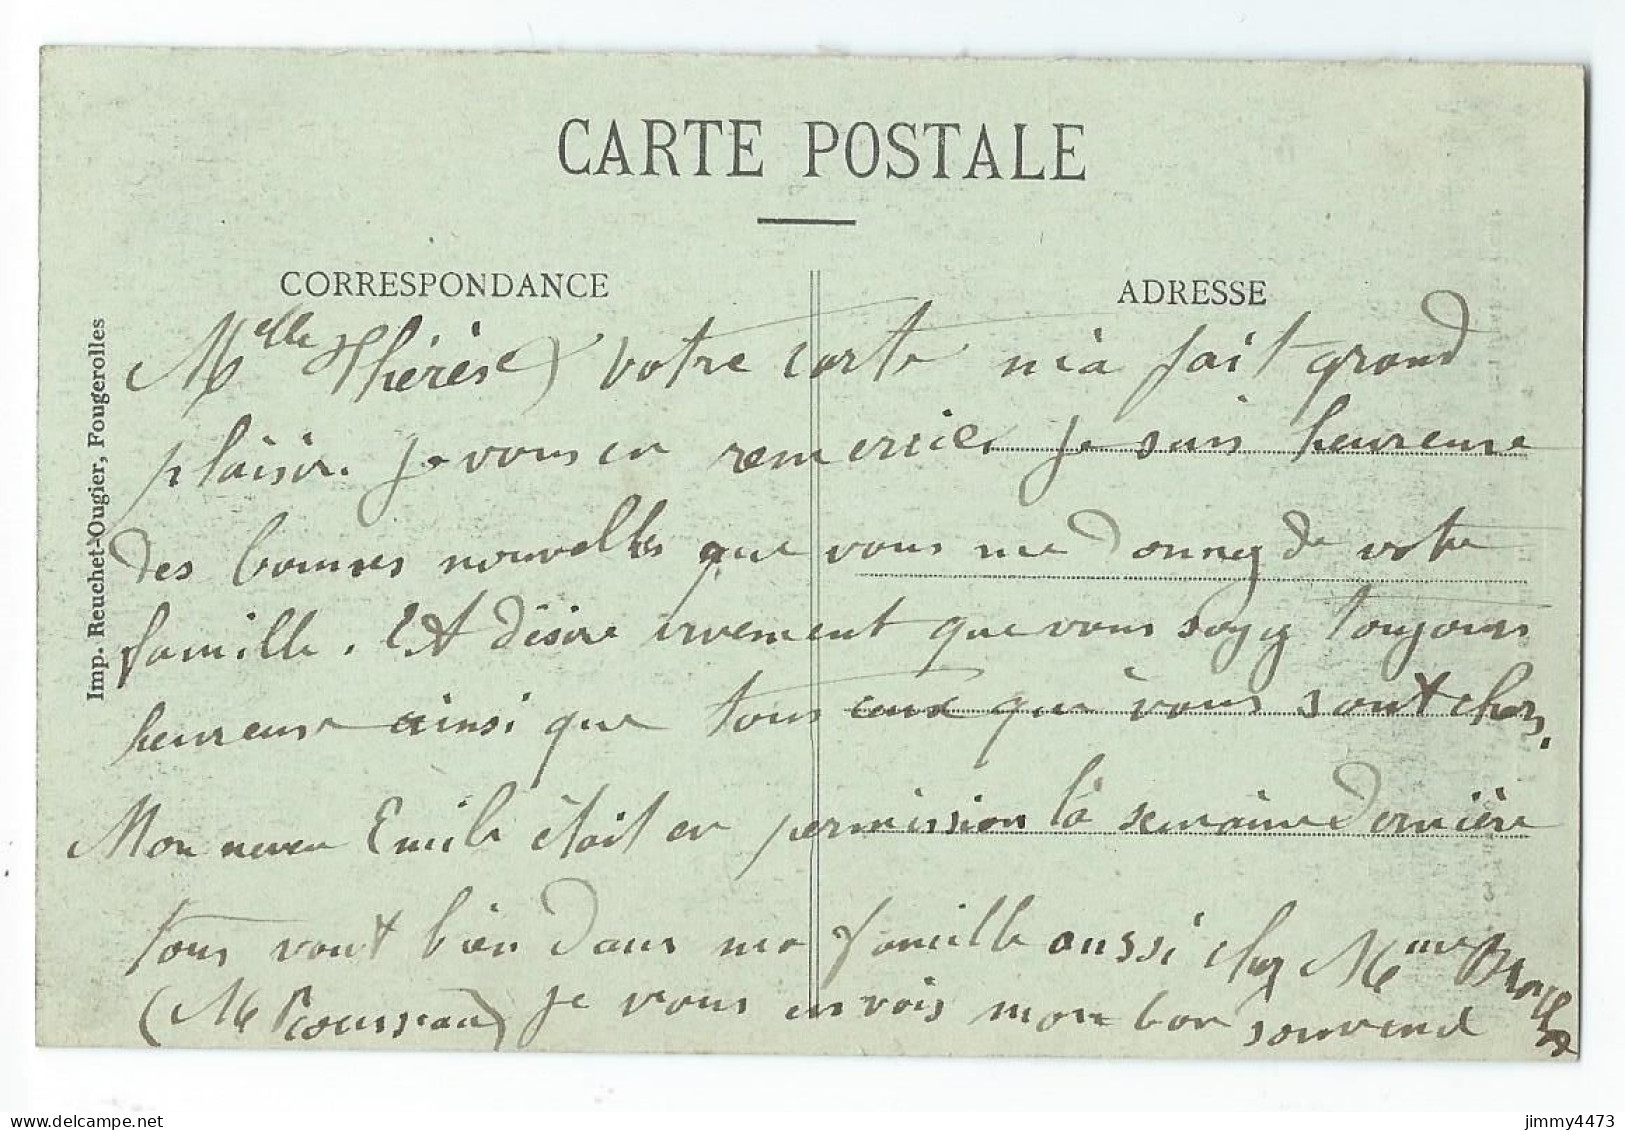 CARTE POSTALE
CORRESPONDANCE
ADRESSE
Imp. Reuchet-Ougier, Fougerolles
Melle Thérèse votre carte m'a fait grand
plaisir. Je vous en remercie. Je suis heureuse
des bonnes nouvelles que vous me donnez de votre
famille. Et désire vivement que vous soyez toujours
heureuse ainsi que tous ceux qui vous sont chers.
Mon neveu Emile était en permission la semaine dernière
tous vont bien dans ma famille aussi chez Mme
(M Rousseau) je vous envois mon bon souvend
delcampe.net
jimmy4473